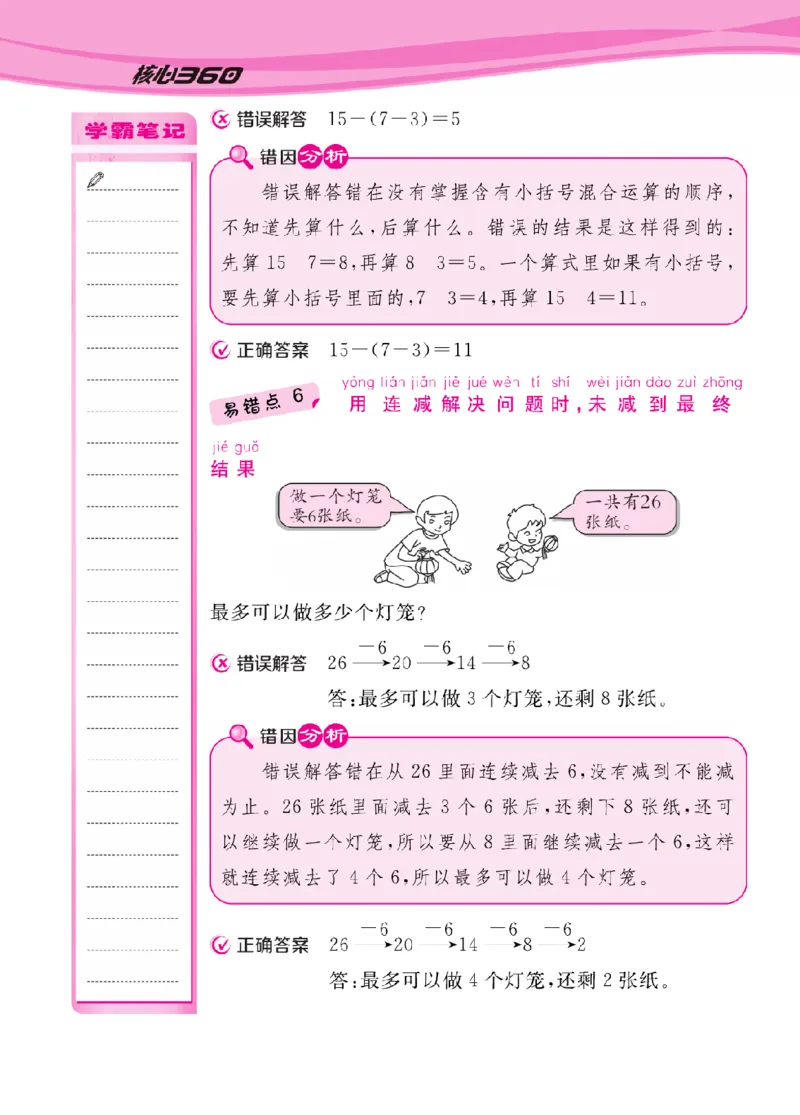 核心360
学霸笔记
错误解答 15－(7－3)＝5
错因分析
错误解答错在没有掌握含有小括号混合运算的顺序，
不知道先算什么，后算什么。错误的结果是这样得到的：
先算 15 7＝8，再算 8 3＝5。一个算式里如果有小括号，
要先算小括号里面的，7 3＝4，再算 15 4＝11。
正确答案 15－(7－3)＝11
yòng lián jiǎn jiě jué wèn tí shí wèi jiǎn dào zuì zhōng
易错点 6 用连减解决问题时，未减到最终
jié guǒ
结果
做一个灯笼
要6张纸。
一共有26
张纸。
最多可以做多少个灯笼？
－6 －6 －6
错误解答 26→20→14→8
答：最多可以做 3 个灯笼，还剩 8 张纸。
错因分析
错误解答错在从 26 里面连续减去 6，没有减到不能减
为止。26 张纸里面减去 3 个 6 张后，还剩下 8 张纸，还可
以继续做一个灯笼，所以要从 8 里面继续减去一个 6，这样
就连续减去了 4 个 6，所以最多可以做 4 个灯笼。
－6 －6 －6 －6
正确答案 26→20→14→8→2
答：最多可以做 4 个灯笼，还剩 2 张纸。